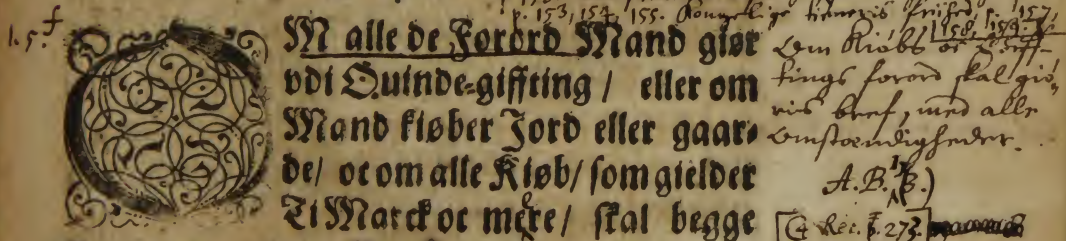 p. 153, 154, 155. Kongelige
157,
158, 159
1.5. f
OM alle de Forord Mand giør
vdi Quinde-giffting / eller om
Mand kiøber Jord eller gaar-
de/ oc om alle Kiøb/ som gielder
Ti Marck oc mere/ skal begge
Om Kiøbs oc Giff-
tings forord skal giø-
ris bref, med alle
Omstændigheder.
A.B. 13.)
Rec. 273.